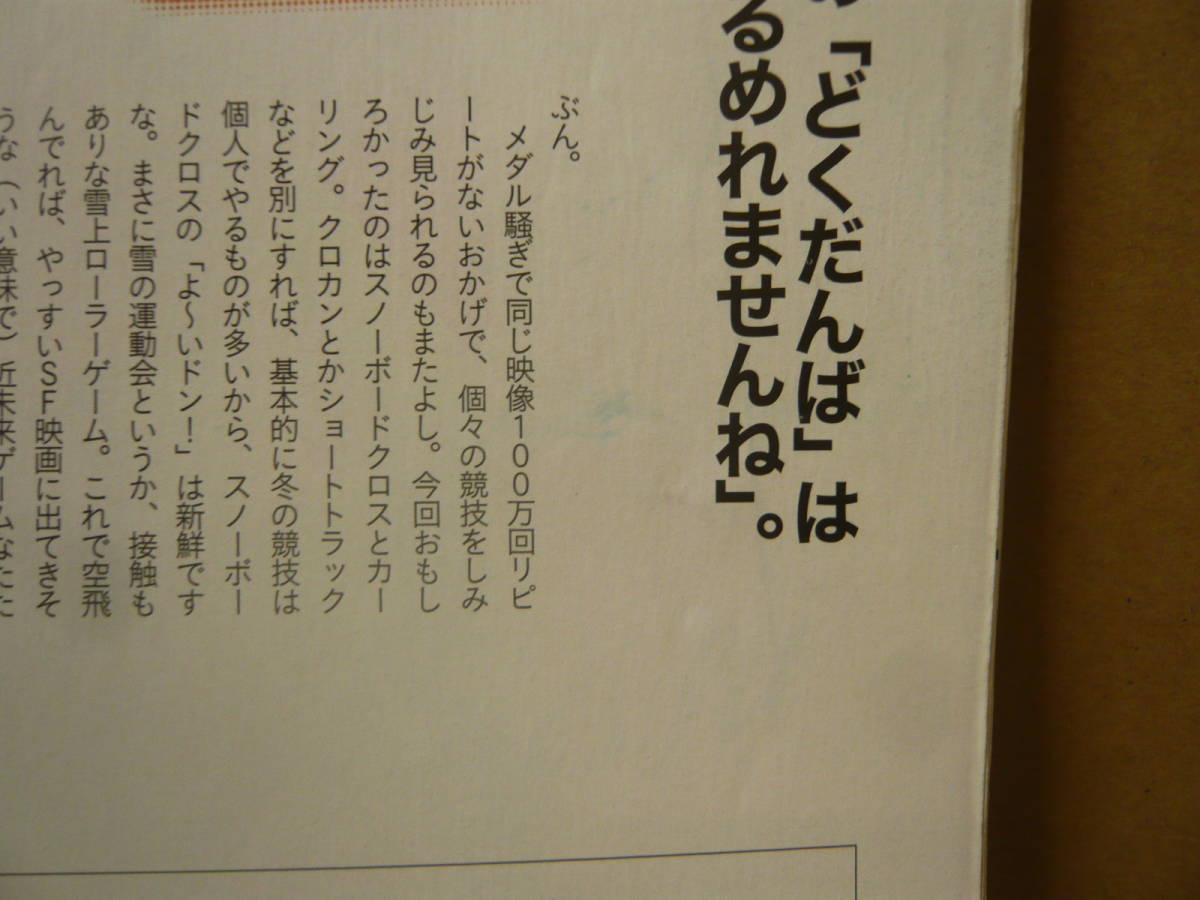 「どくだんば」は
るめれませんね」。
ぶん。
メダル騒ぎで同じ映像100万回リピ
ートがないおかげで、個々の競技をしみ
じみ見られるのもまたよし。今回おもし
ろかったのはスノーボードクロスとカー
リング。クロカンとかショートトラック
などを別にすれば、基本的に冬の競技は
個人でやるものが多いから、スノーボー
ドクロスの「よ〜いドン！」は新鮮です
な。まさに雪の運動会というか、接触も
ありな雪上ローラーゲーム。これで空飛
んでれば、やっすいSF映画に出てきそ
うな（いい意味で）近未来ゲームなたた